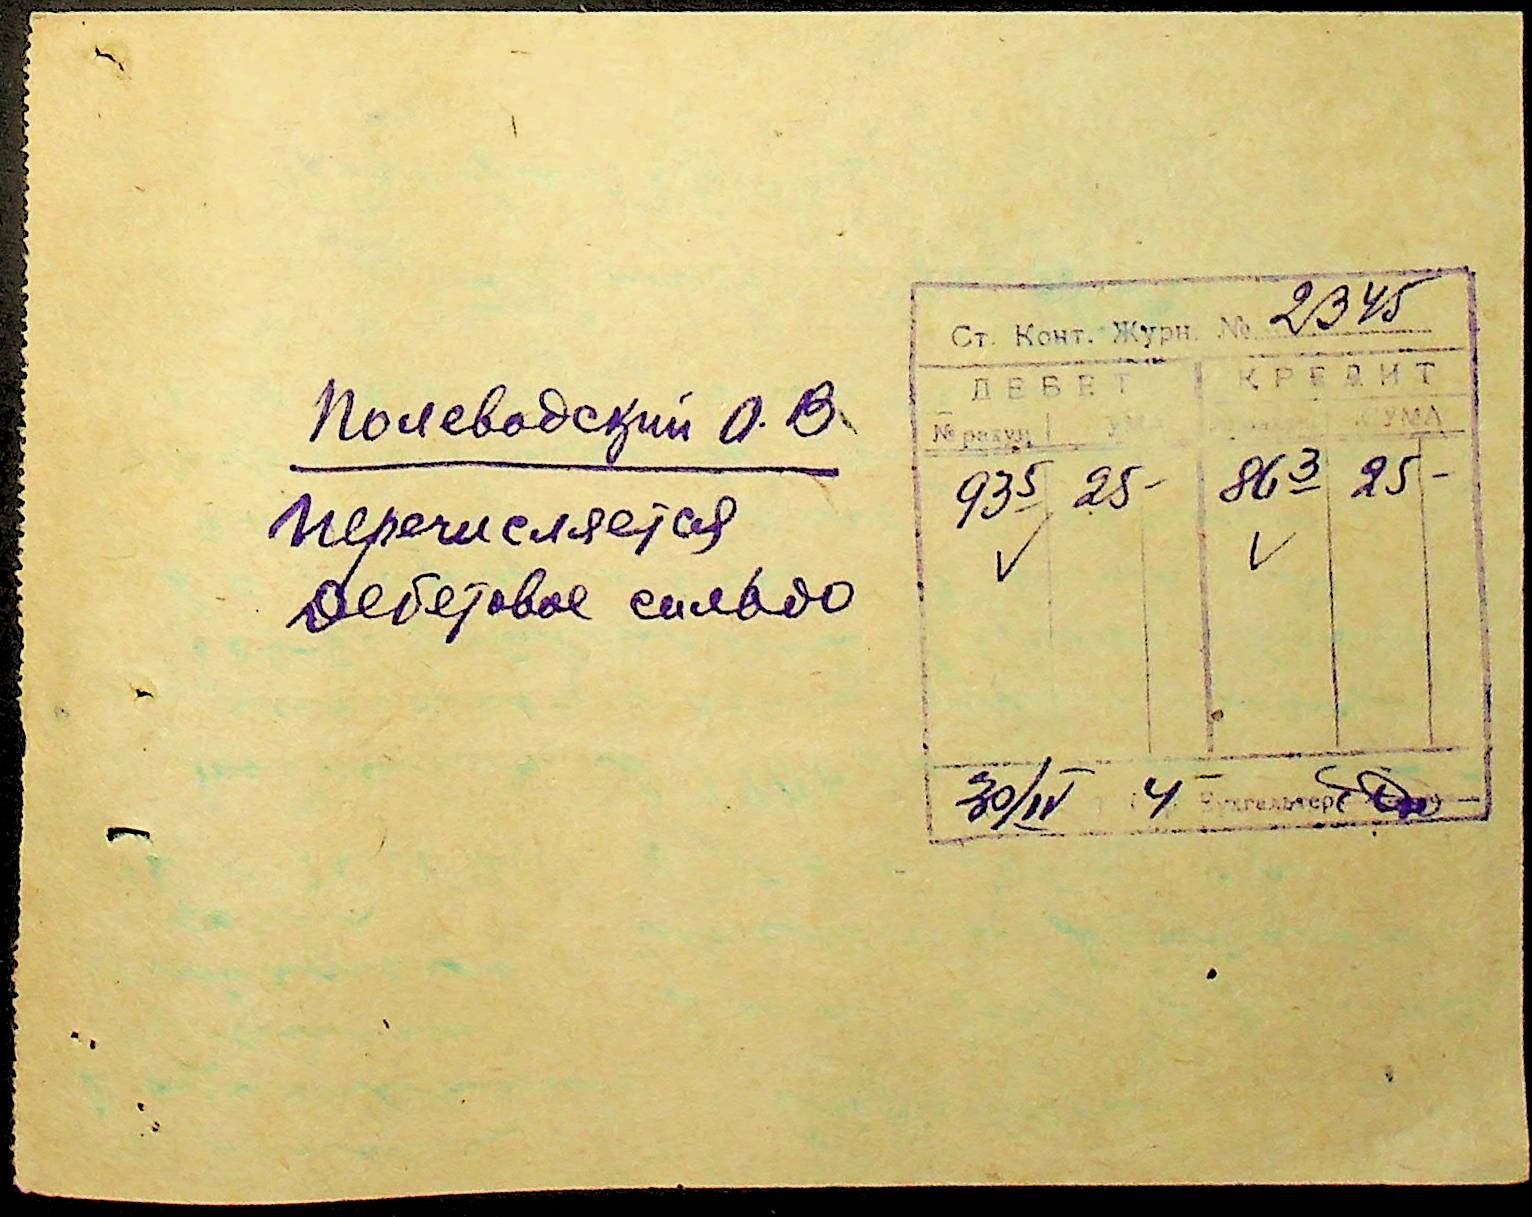 Полеводский О. В.
Перечисляется
дебетовое сальдо
Ст. Конт. Журн. № 2345
ДЕБЕТ КРЕДИТ
№ рахун УМА УМА
935 25- 863 25-
30/IV Бухгалтер